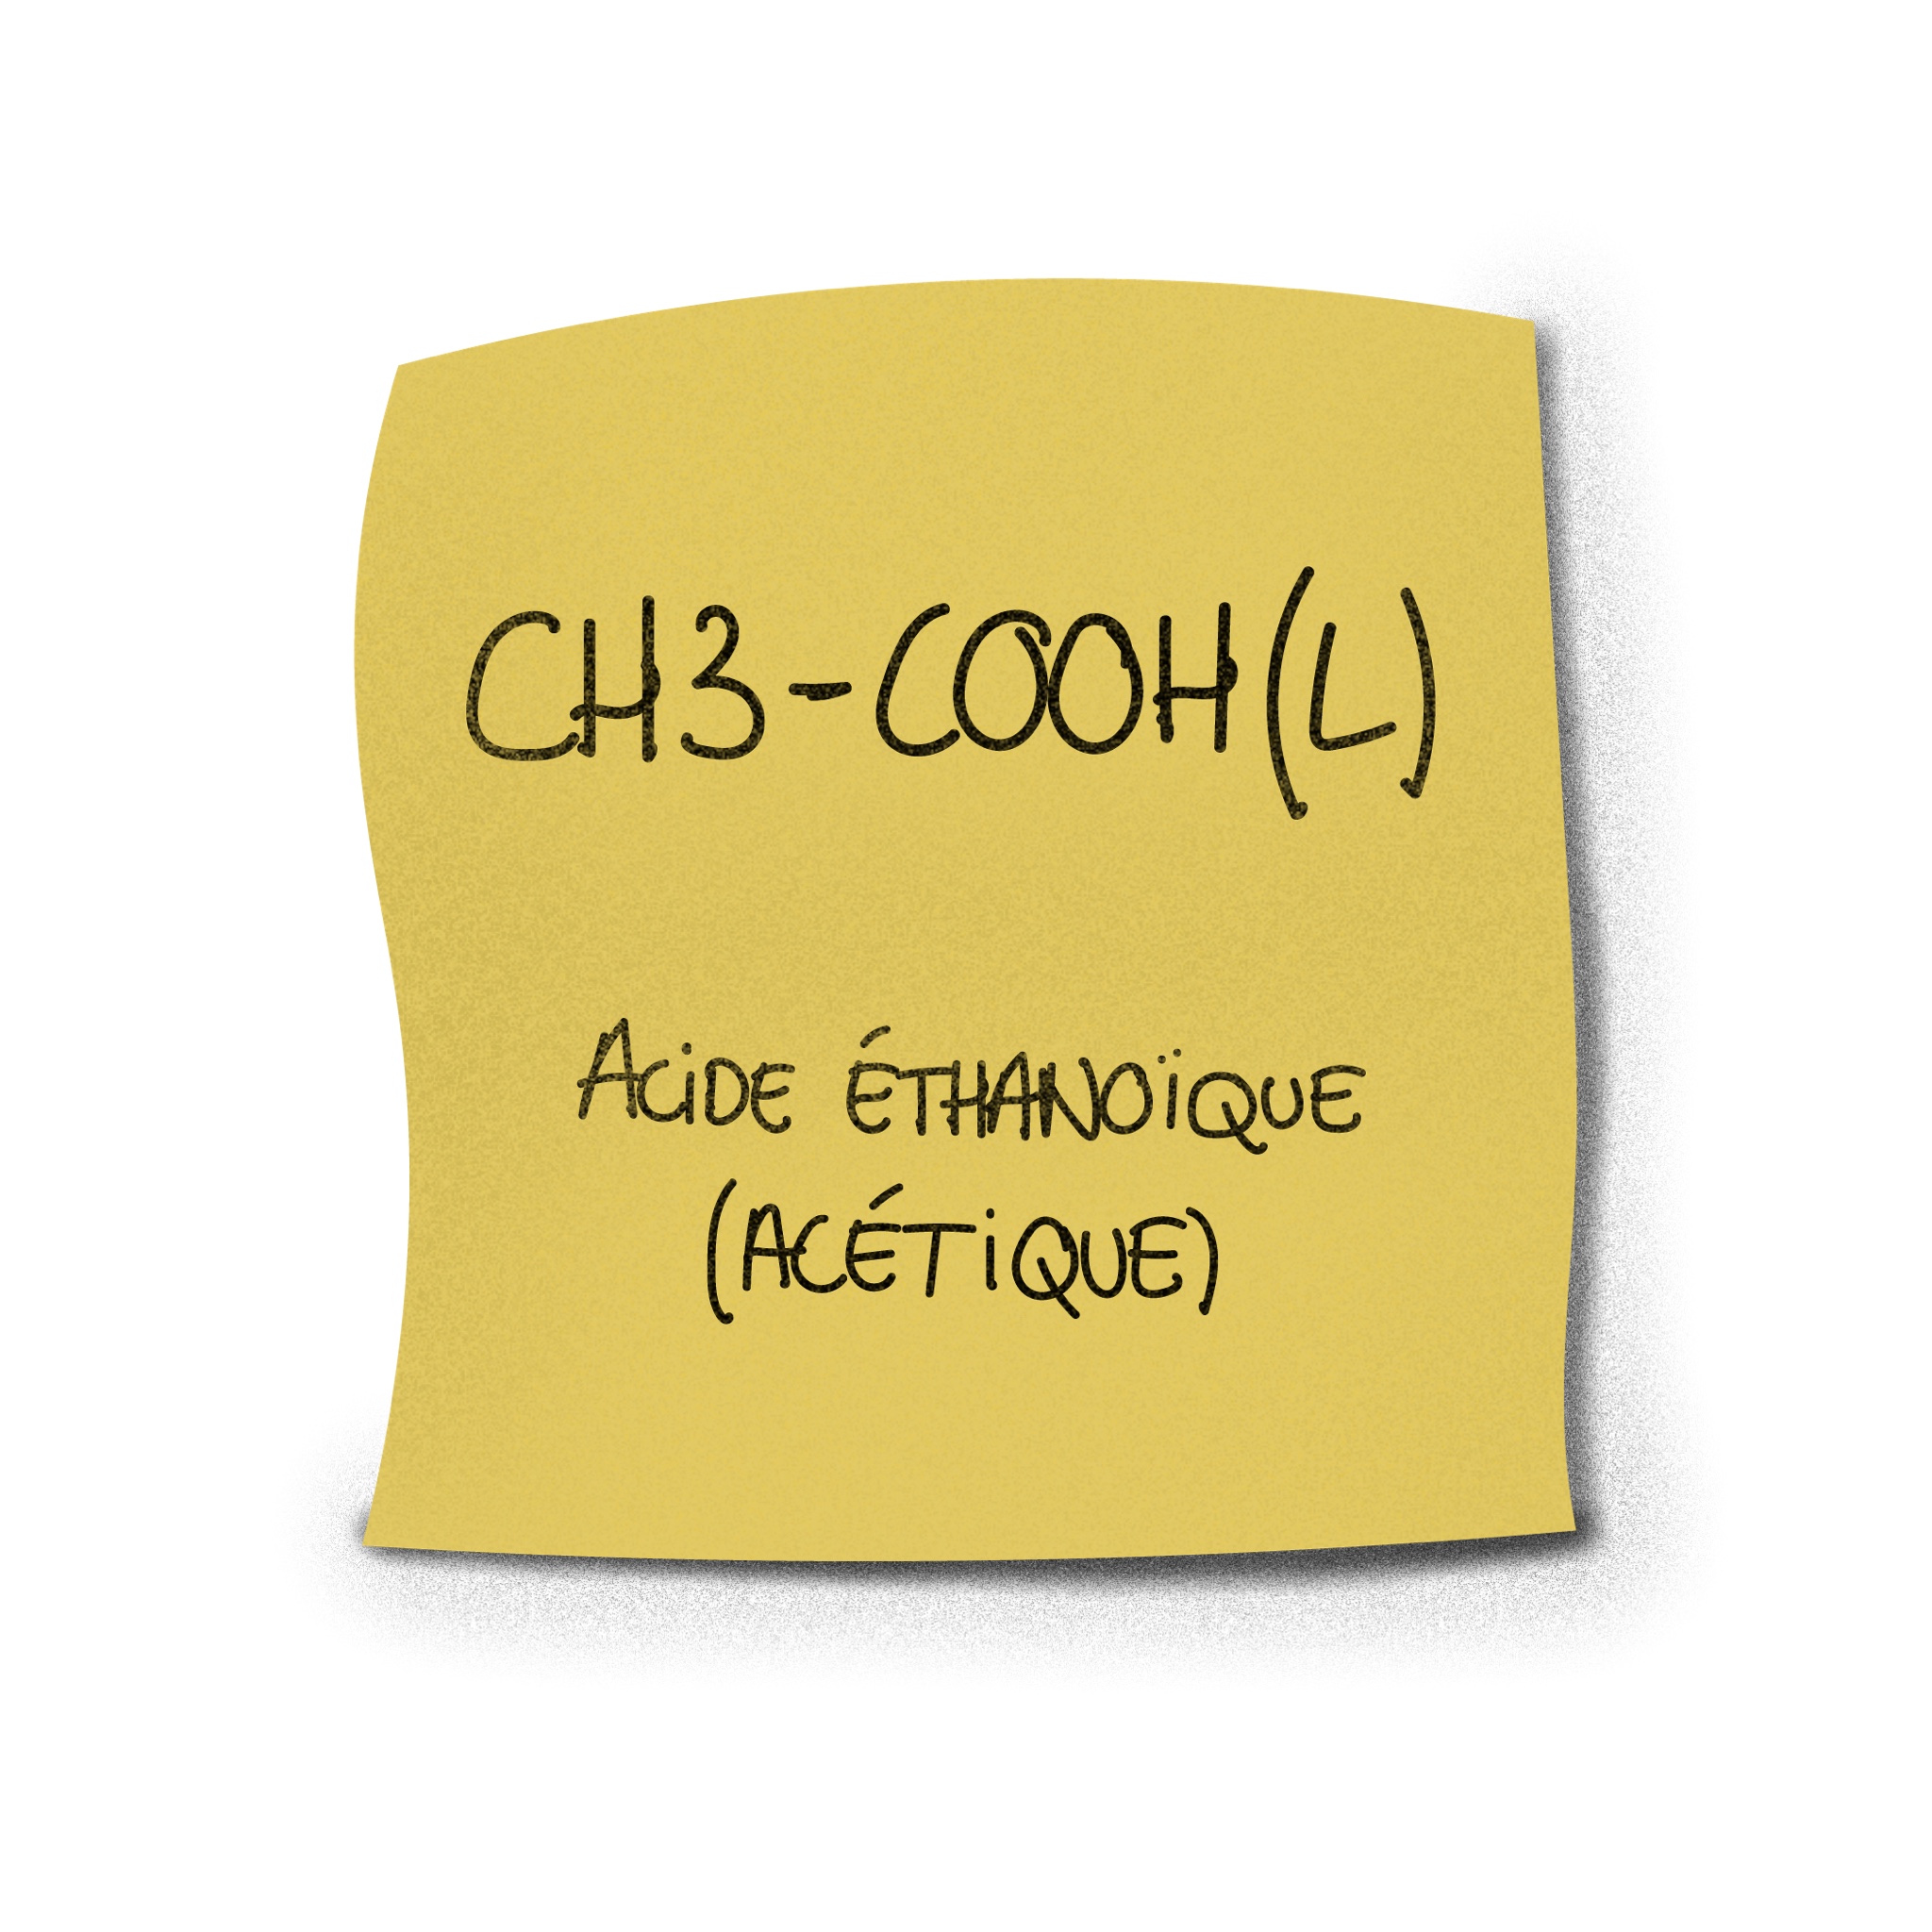 CH3-COOH(L)
ACiDE ÉTHANOÏQUE
(ACÉTiQUE)